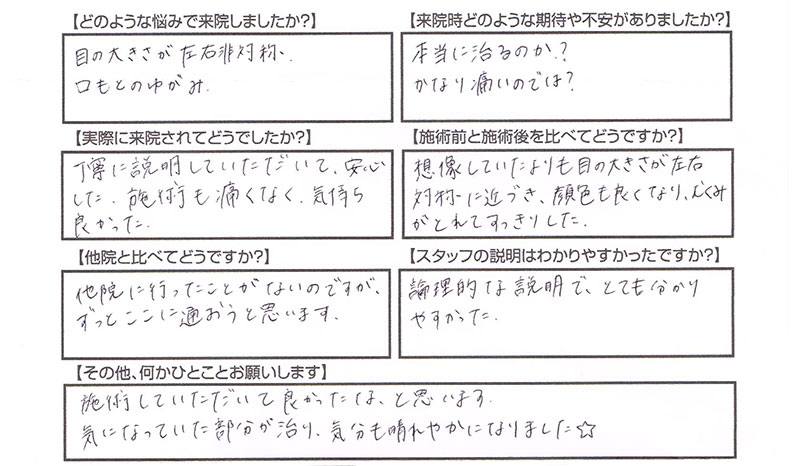 【どのような悩みで来院しましたか?】
目の大きさが左右非対称、
口もとのゆがみ.
【来院時どのような期待や不安がありましたか?】
本当に治るのか?
かなり痛いのでは?
【実際に来院されてどうでしたか?】
丁寧に説明していただいて、安心
した. 施術も痛くなく、気持ち
良かった.
【施術前と施術後を比べてどうですか?】
想像していたよりも目の大きさが左右
対称に近づき、顔色も良くなり、むくみ
がとれてすっきりした.
【他院と比べてどうですか?】
他院に行ったことがないのですが、
ずっとここに通おうと思います.
【スタッフの説明はわかりやすかったですか?】
論理的な説明で、とても分かり
やすかった.
【その他、何かひとことお願いします】
施術していただいて良かったな、と思います.
気になっていた部分が治り、気分も晴れやかになりました☆